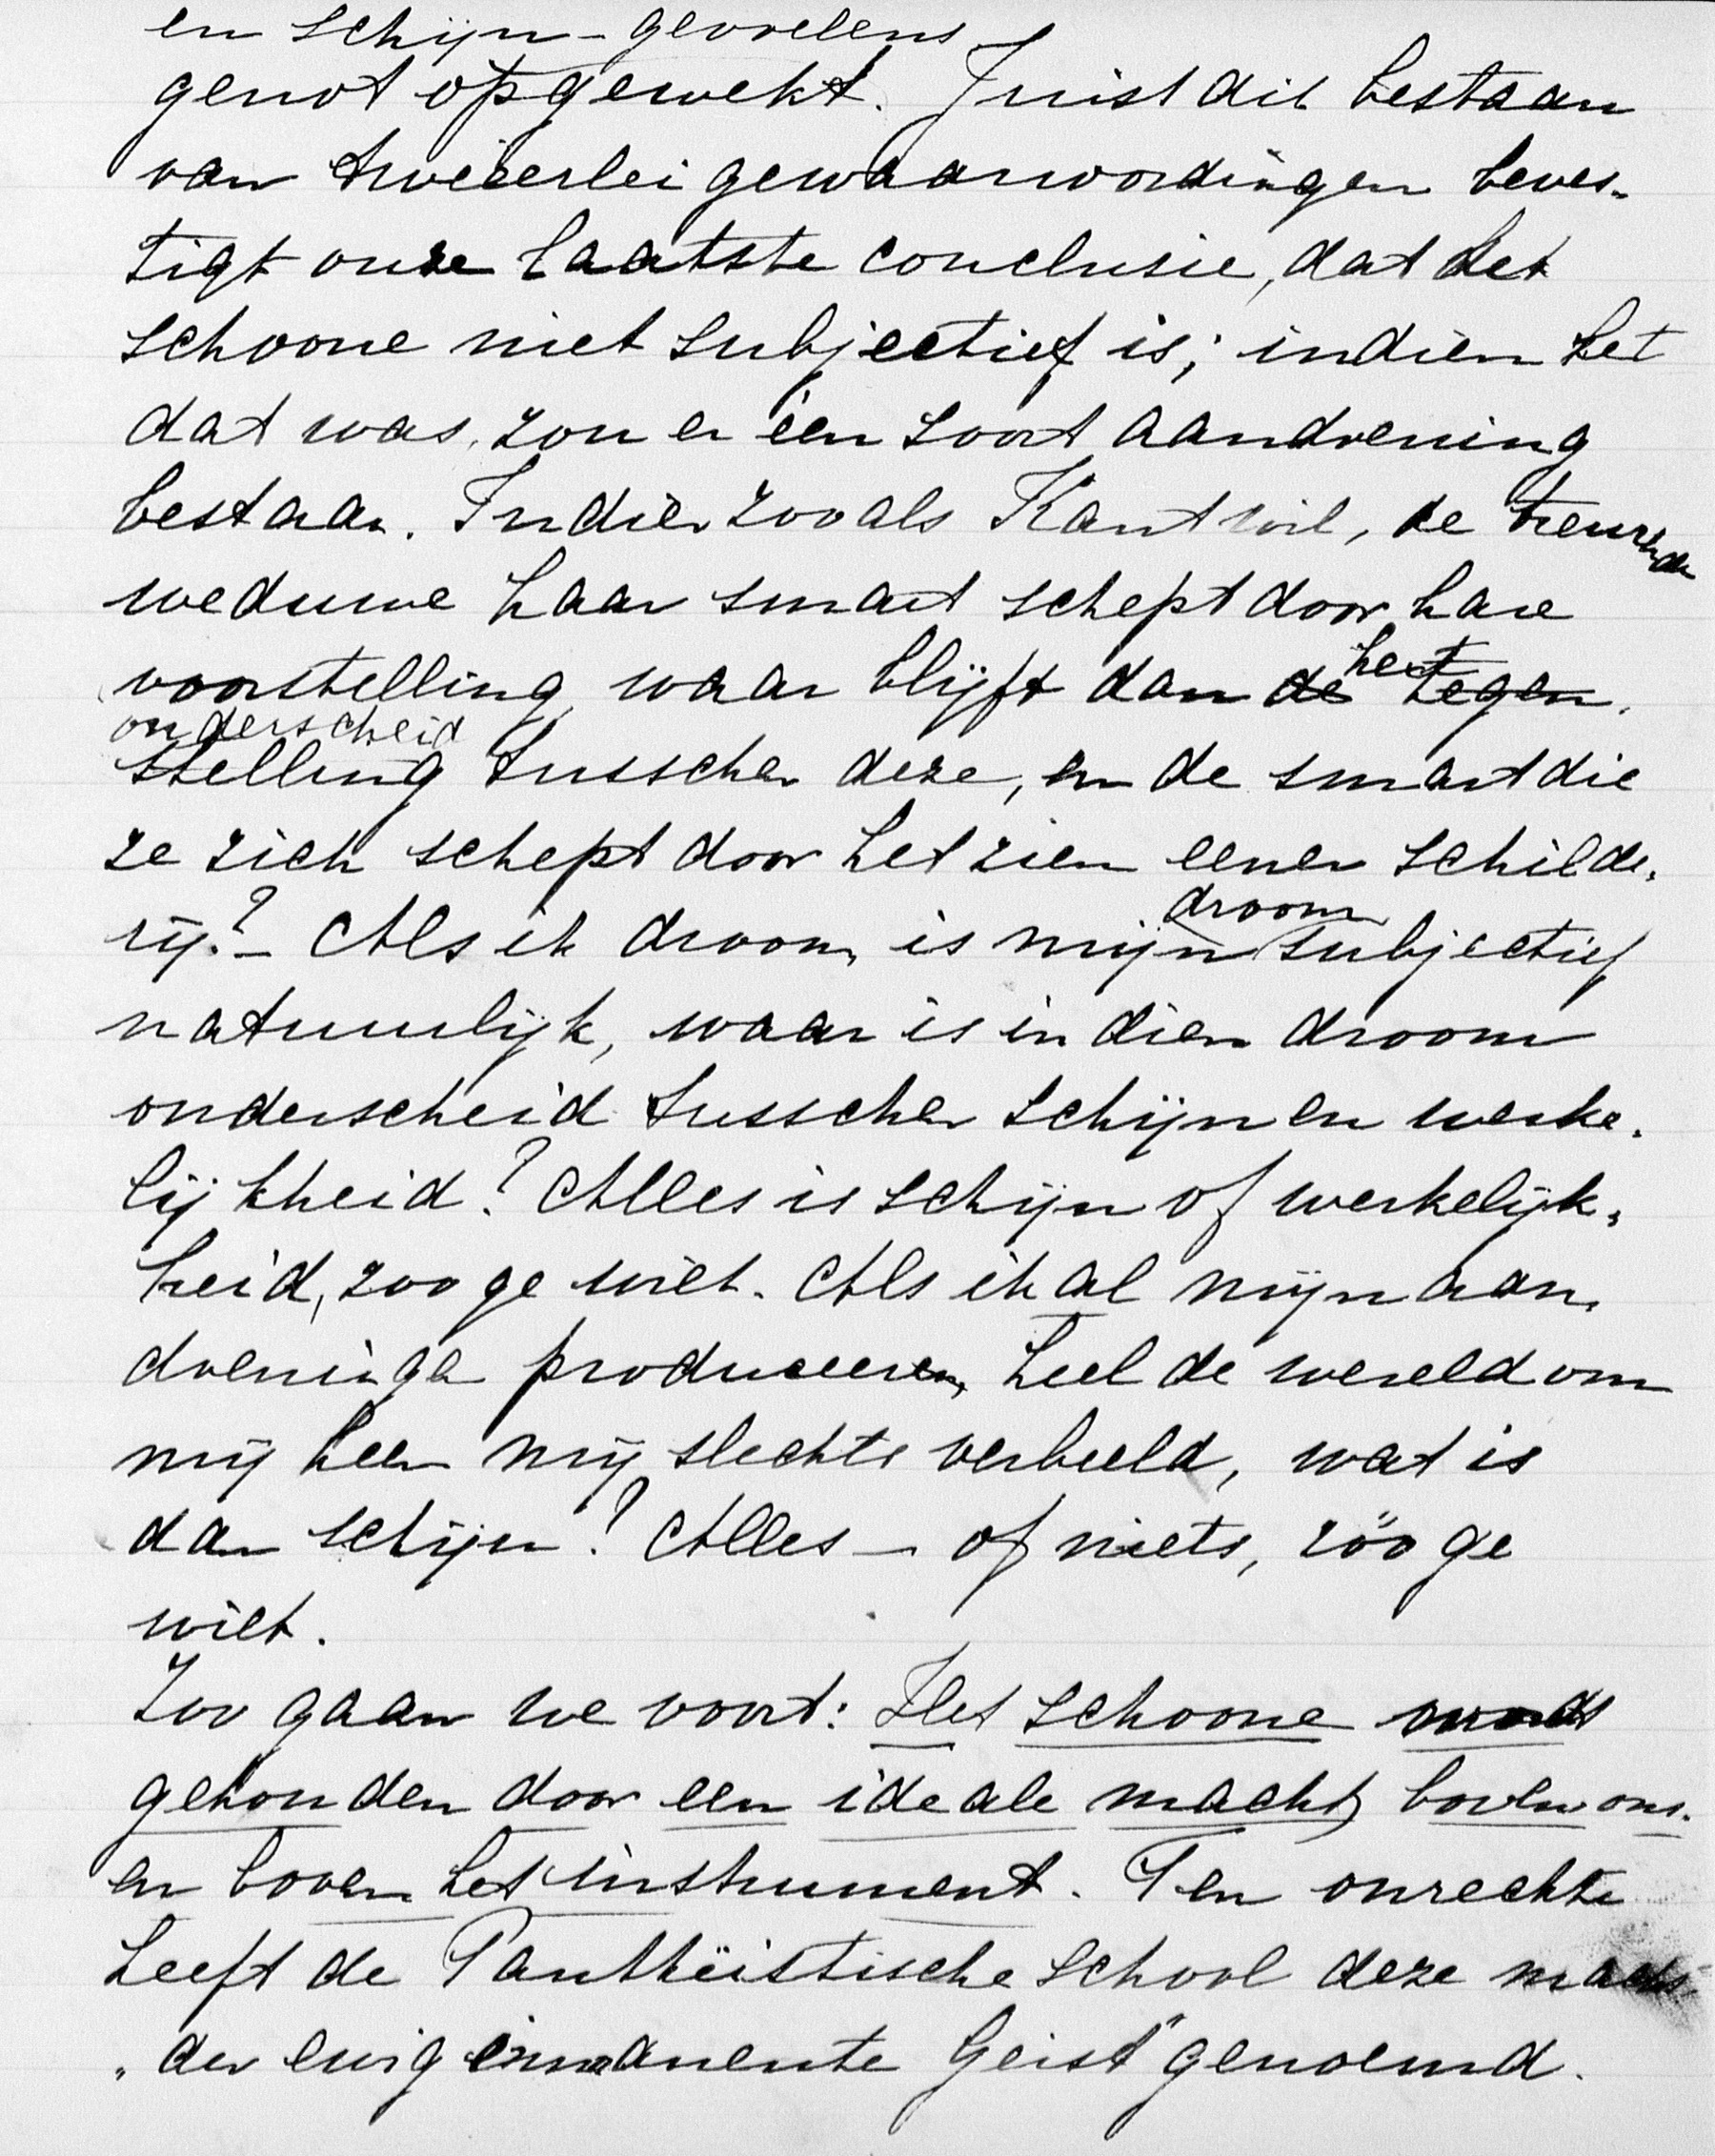 en schijn-gevoelens
genot opgewekt. Juist dit bestaan
van tweeërlei gewaarwordingen beves-
tigt onze laatste conclusie, dat het
schoone niet subjectief is; indien het
dat was, zou er één soort aandoening
bestaan. Indien zooals Kant wil, de treurende
weduwe haar smart schept door hare
voorstelling, waar blijft dan de het tegen-
onderscheid
stelling tusschen deze, en de smart die
ze zich schept door het zien eener schilde-
rij? – Als ik droom, is mijn droom subjectief
natuurlijk, waar is in dien droom
onderscheid tusschen schijn en werke-
lijkheid? Alles is schijn of werkelijk-
heid, zoo ge wilt. Als ik al mijn aan-
doeningen produceer, heel de wereld om
mij heen mij slechts verbeeld, wat is
dan schijn? Alles – of niets, zóó ge
wilt.
Zoo gaan we voort: Het schoone wordt
gehouden door een ideale macht, boven ons
en boven het instrument. Ten onrechte
heeft de Pantheïstische school deze macht
„der ewig immanente Geist" genoemd.